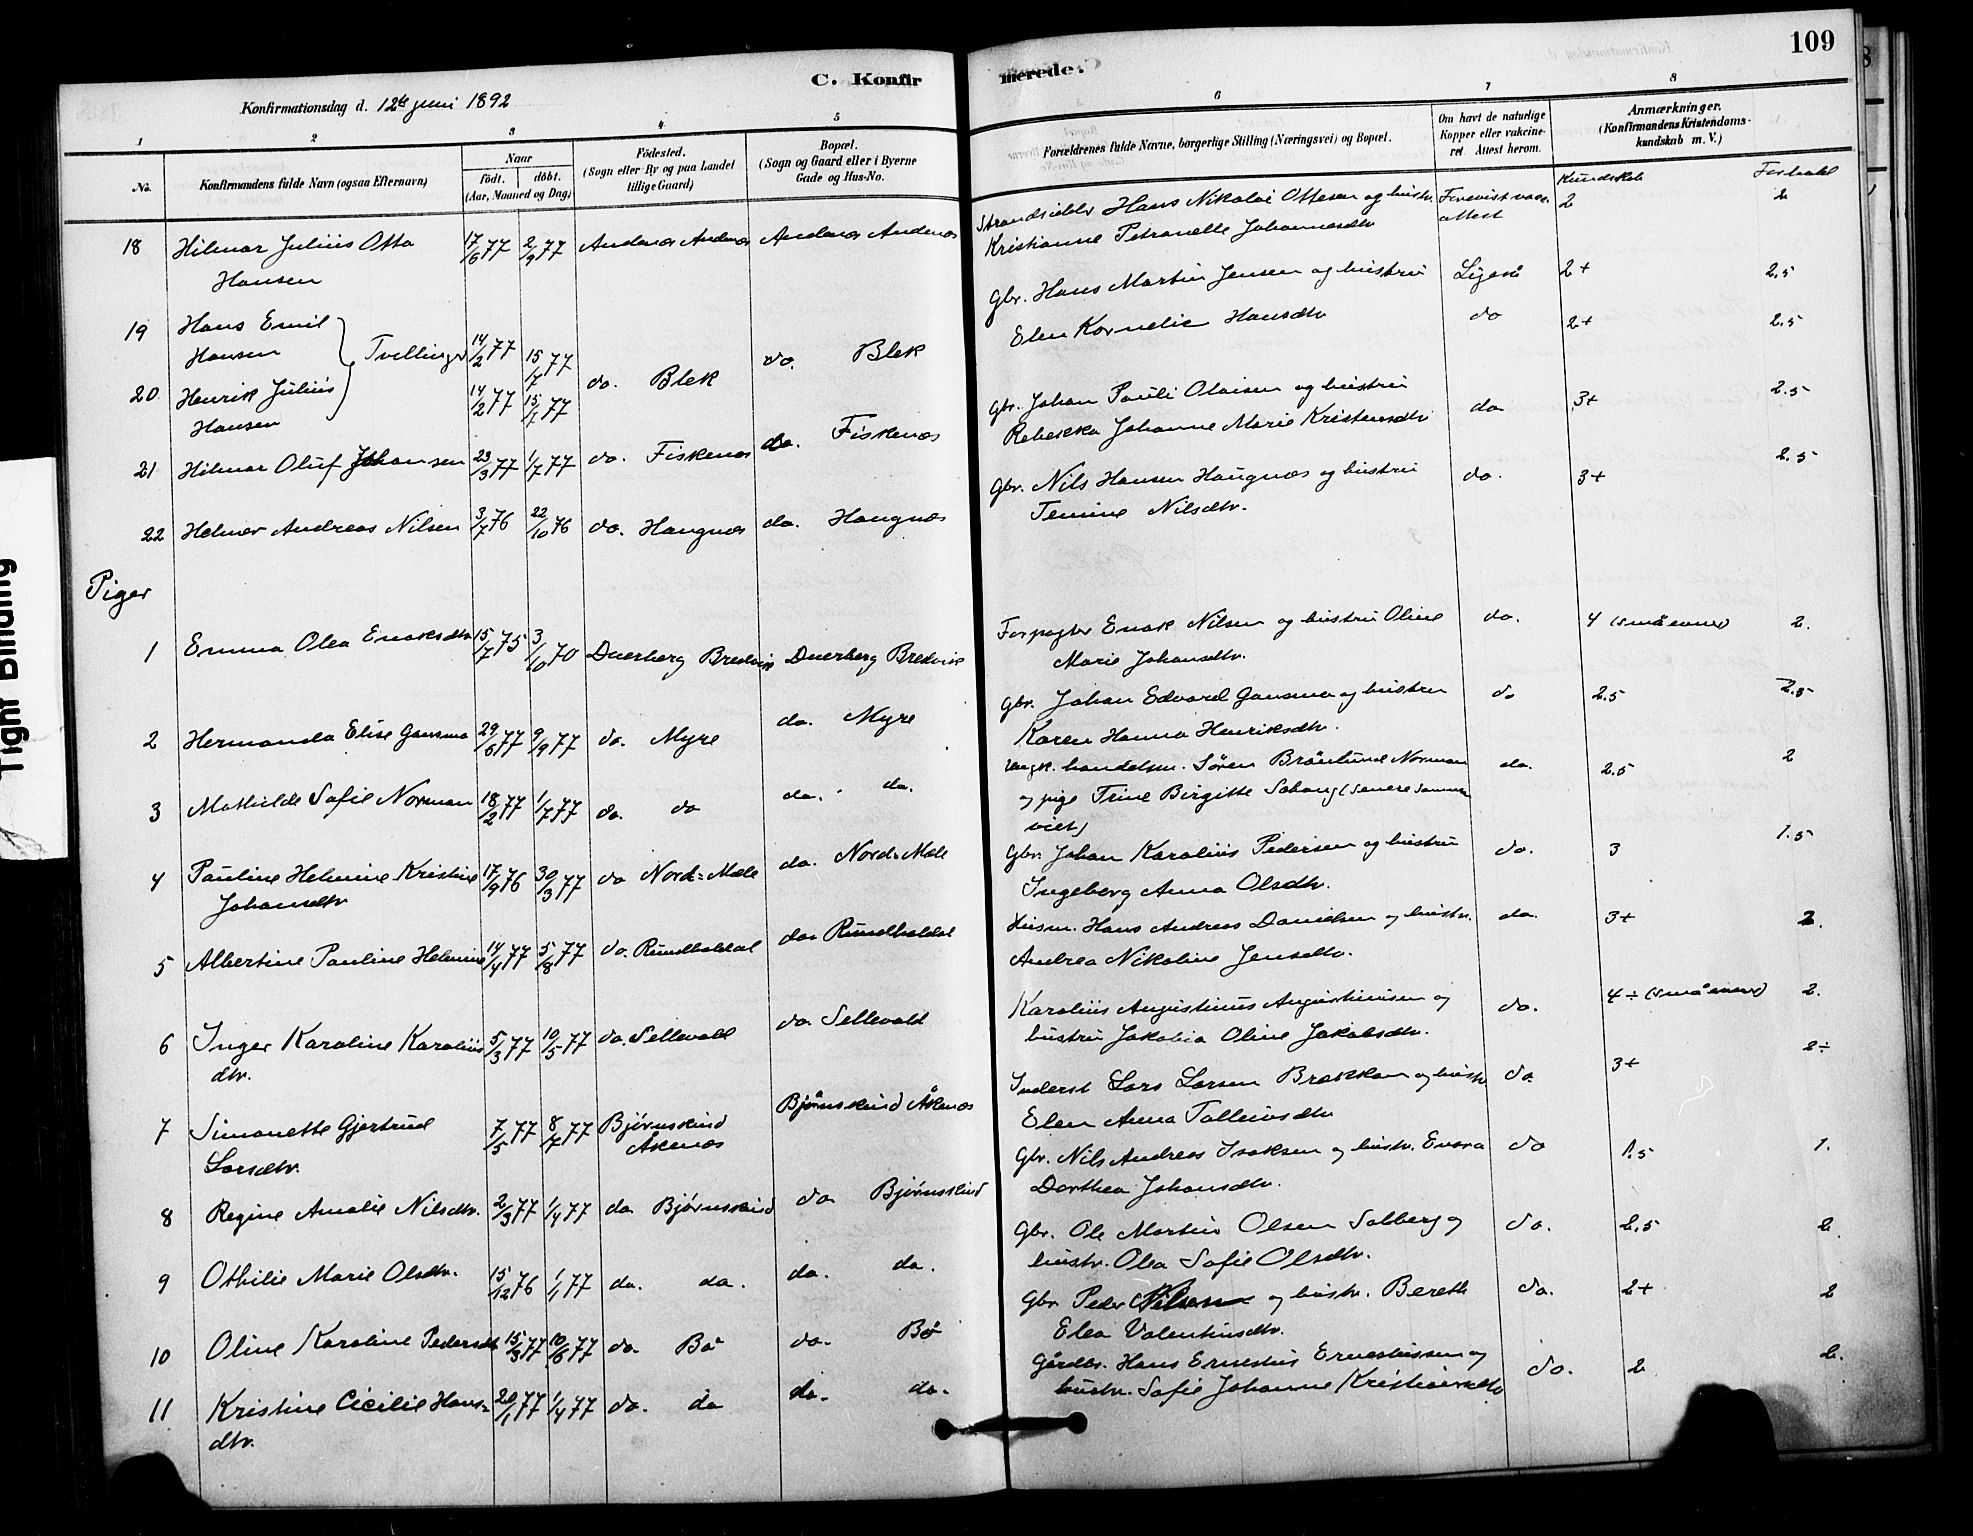 C. Konfir
merede.
109
Konfirmationsdag d. 12te juni 1892
1 2 3 4 5 6 7 8
No.
Konfirmandens fulde Navn (ogsaa Efternavn)
Naar
födt. döbt.
(Aar, Maaned og Dag)
Födested.
(Sogn eller By og paa Landet
tillige Gaard)
Bopæl.
(Sogn og Gaard eller i Byerne
Gade og Hus-No.
Forældrenes fulde Navne, borgerlige Stilling (Næringsvei) og Bopæl.
Om havt de naturlige
Kopper eller vakcine-
ret. Attest herom.
Anmærkninger.
(Konfirmandens Kristendoms-
kundskab m. V.)
Kundskab Forhold
18 Hilmar Julius Otto 17/6 77 2/9 77 Andenes Andenes Andenes Andenes Strandsidder Hans Nikolai Ottesen og hustr. Forevist vacc. 2 2
Hansen Kristianne Petronelle Johannesdtr attest
19 Hans Emil Gbr. Hans Martin Jensen og hustru Ligeså 2+ 2.5
Hansen Tvillinger 14/2 77 15/7 77 do. Blek do. Blek Elen Kornelie Hansdtr do 2+ 2.5
20 Henrik Julius 14/2 77 15/7 77
Hansen
21 Hilmar Oluf Johansen 23/3 77 1/7 77 do. Fiskenes do. Fiskenes Gbr. Johan Pauli Olaisen og hustru do 3+ 2.5
Rebekka Johanne Marie Kristensdtr
22 Helmer Andreas Nilsen 3/7 76 22/10 76 do. Haugnes do. Haugnes Gbr. Nils Hansen Haugnæs og hustru do. 3+ 2.5
Temine Nilsdtr.
Piger
1 Emma Olea Enoksdtr 15/7 75 3/10 70 Dverberg Bredvik Dverberg Bredvik Forpagter Enok Nilsen og hustru Oline do. 4 (små evner) 2.
Marie Johansdtr.
2 Hermanda Elise Gansmo 29/6 77 9/9 77 do. Myre do. Myre Gbr. Johan Edvard Gansmo og hustru do 2.5 2.5
Karen Hanna Henriksdtr.
3 Mathilde Sofie Norman 18/2 77 1/7 77 do. do do. do. Ungk. handelsm. Søren Brönlund Norman do. 2.5 2
og pige Trine Birgitte Schang (senere sammen
viet)
4 Pauline Helmine Kristine 17/9 76 30/3 77 do Nord-Mele do. Nord-Mele Gbr. Johan Karolius Pedersen og hustru do. 3 1.5
Johansdtr Ingeborg Anna Olsdtr.
5 Albertine Pauline Helmine 14/4 77 5/8 77 do. Rundhaldal do. Rundhaldal Husm. Hans Andreas Danielsen og hustr. do. 3+ 2.
Andrea Nikoline Jensdtr.
6 Inger Karoline Karolius 5/3 77 10/5 77 do. Sellevold do. Sellevold Karolius Augustinus Augustinusen og do. 4÷ (små evner) 2.
dtr. hustru Jakobia Oline Jakobsdtr.
7 Simonette Gjertrud 7/5 77 8/7 77 Bjørnskind Bjørnskind Åkenes Inderst Lars Larsen Brækkan og hustr do. 3+ 2÷
Larsdtr. Åkenes Elen Anna Tollevsdtr
8 Regine Amalie Nilsdtr. 2/3 77 1/4 77 do Bjørnskind do Bjørnskind Gbr. Nils Andreas Isaksen og hustr. Evora do 1.5 1.
Dorthea Johansdtr.
9 Othilie Marie Olsdtr. 15/12 76 1/1 77 do. do. do. do. Gbr. Ole Martin Olsen Solberg og do. 2.5 2.
hustr. Olea Sofie Olsdtr.
10 Oline Karoline Pedersdtr 15/3 77 10/6 77 do. Bö do. Bö Gbr. Peder Nilsen og hustr. Bereth do. 2+ 2
Elea Valentinsdtr.
11 Kristine Cicilie Hans= 20/1 77 1/4 77 do. do do. do. Gårdbr. Hans Ernestus Ernestussen og do. 2 2.
dtr. hustr. Sofie Johanne Kristiansdtr
Tight Binding